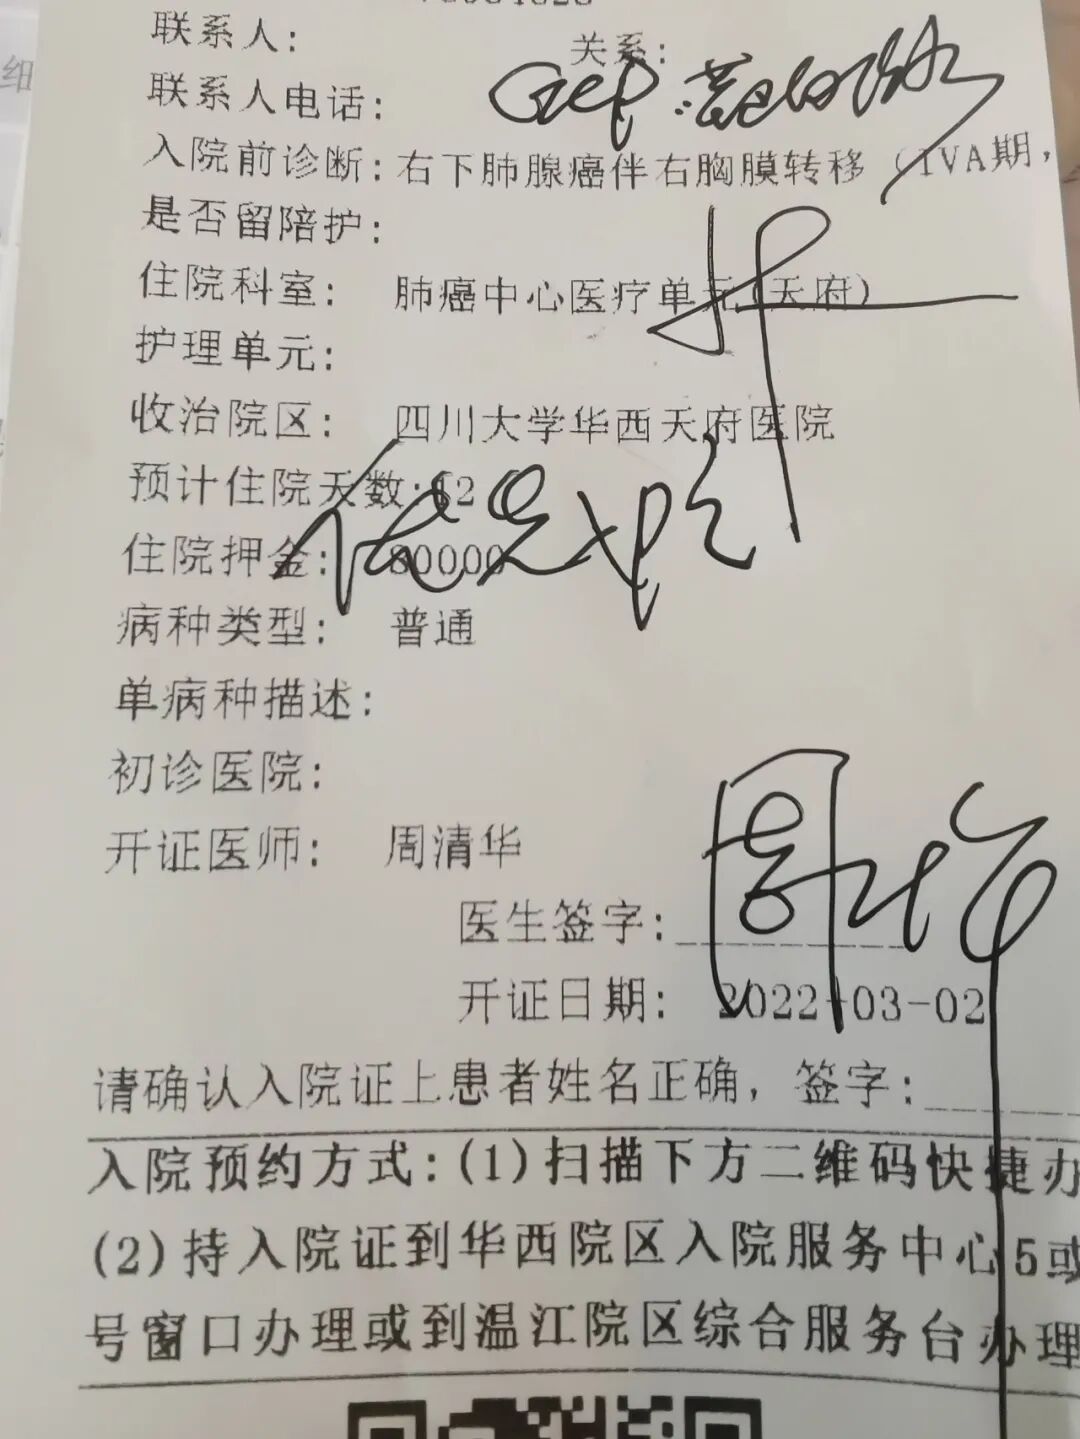 细
联系人:
关系:
联系人电话:
入院前诊断:右下肺腺癌伴右胸膜转移(IVA期,
是否留陪护:
住院科室: 肺癌中心医疗单元(天府)
护理单元:
收治院区: 四川大学华西天府医院
预计住院天数:12
住院押金: 80000
病种类型: 普通
单病种描述:
初诊医院:
开证医师: 周清华
医生签字:
开证日期: 2022-03-02
请确认入院证上患者姓名正确, 签字:
入院预约方式:(1)扫描下方二维码快捷办
(2)持入院证到华西院区入院服务中心5或
号窗口办理或到温江院区综合服务台办理